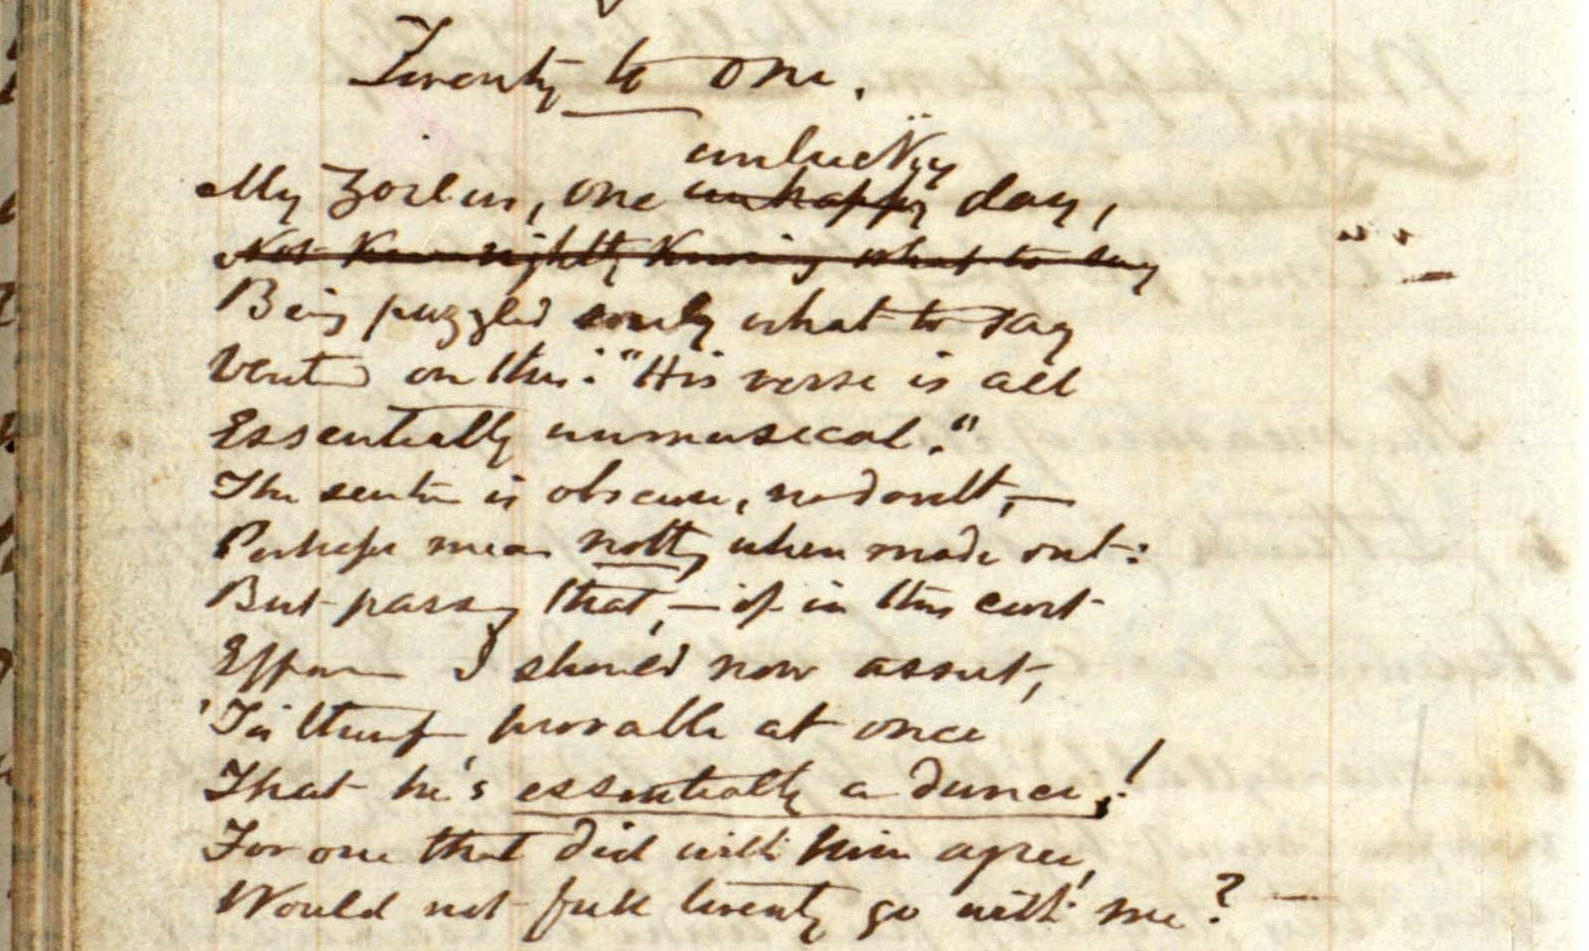 Twenty to one.
unlucky
My Zoilus, one unhappy day,
Not Know rightly Knowing what to say
Being puzzled sorely what to say
Vented on this: "His verse is all
Essentially unmusical."
The sentence is obscure, no doubt,—
Perhaps means nothing when made out:
But passing that,—if in this curt
Effusion I should now assert,
'Tis therefore provable at once
That he's essentially a dunce,!
For one that did with him agree,
Would not full twenty go with me?